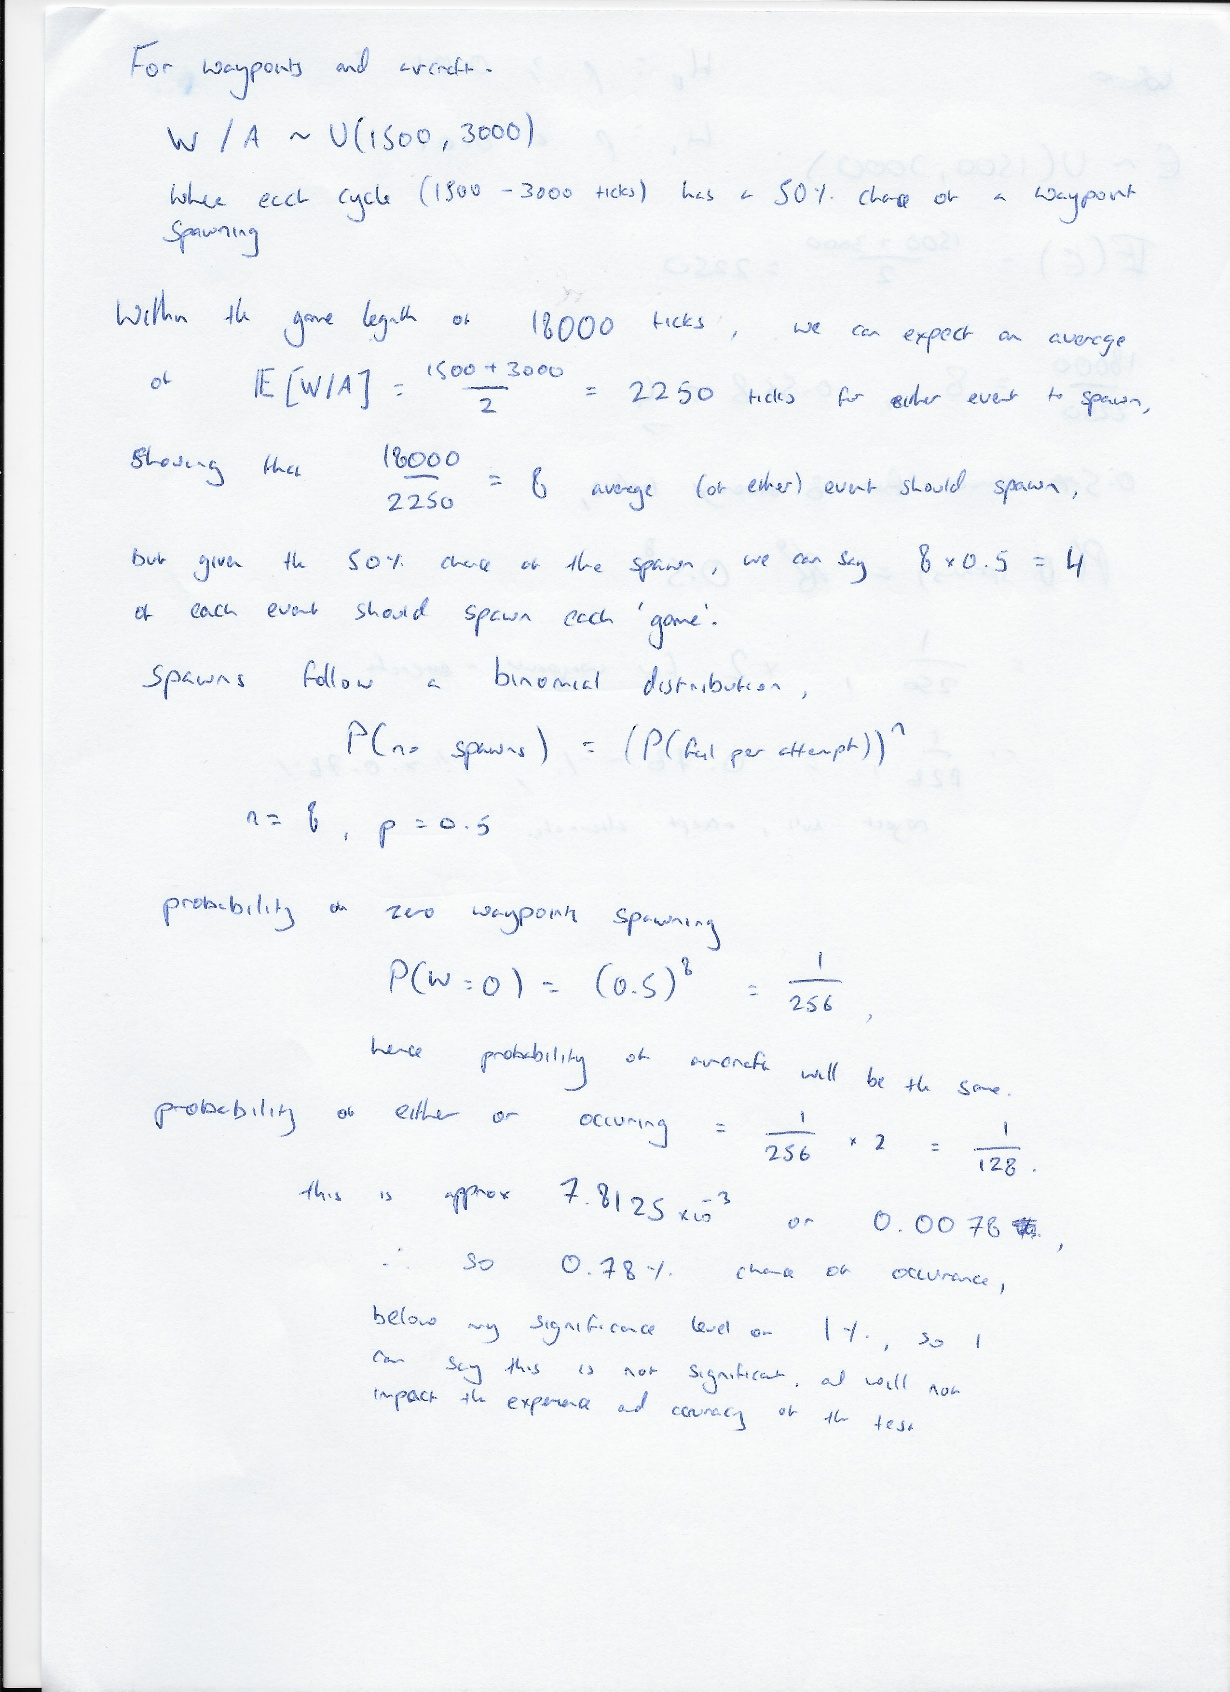 For waypoints and aircraft.
W / A ~ U(1500, 3000)
Where each cycle (1500 - 3000 ticks) has a 50% chance of a waypoint
spawning
Within the game length of 18000 ticks, we can expect an average
of 𝔼[W/A] = (1500 + 3000)/2 = 2250 ticks for either event to spawn,
Showing that 18000/2250 = 8 average (of either) event should spawn,
but given the 50% chance of the spawn, we can say 8 x 0.5 = 4
of each event should spawn each 'game'.
Spawns follow a binomial distribution,
P(no spawns) = (P(fail per attempt))^n
n = 8, p = 0.5
probability of zero waypoints spawning
P(W=0) = (0.5)^8 = 1/256,
hence probability of aircraft will be the same.
probability of either or occuring = 1/256 x 2 = 1/128.
this is approx 7.8125 x10^-3 or 0.0078,
∴ so 0.78% chance of occurance,
below my significance level of 1%, so I
can say this is not significant, and will not
impact the experience and accuracy of the test